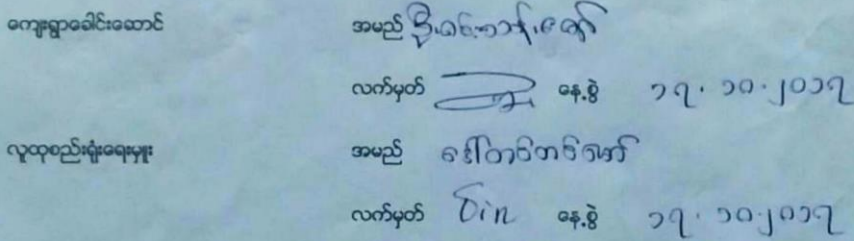 ကျေးရွာခေါင်းဆောင် အမည် ဦး
လက်မှတ် နေ့စွဲ ၁၇.၁၀.၂၀၁၇
လူထုစည်းရုံးရေးမှူး အမည် ဒေါ်တင်တင်အော်
လက်မှတ် Tin နေ့စွဲ ၁၇.၁၀.၂၀၁၇